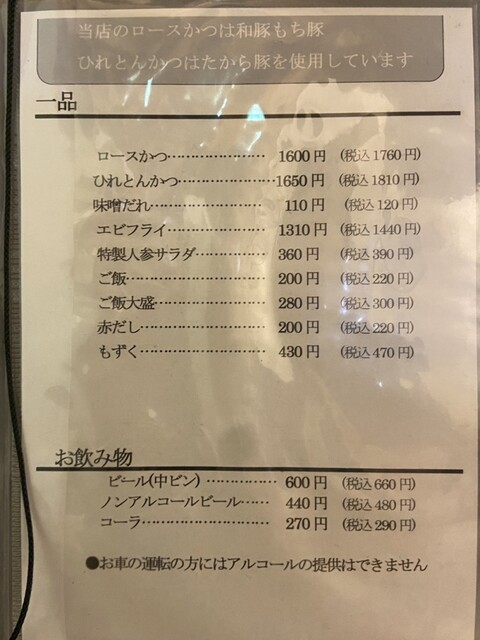 当店のロースかつは和豚もち豚
ひれとんかつはたから豚を使用しています
一品
ロースかつ…………………… 1600円 (税込1760円)
ひれとんかつ……………………1650円 (税込1810円)
味噌だれ…………………… 110円 (税込120円)
エビフライ…………………… 1310円 (税込1440円)
特製人参サラダ…………… 360円 (税込390円)
ご飯…………………… 200円 (税込220円)
ご飯大盛…………………… 280円 (税込300円)
赤だし…………………… 200円 (税込220円)
もずく…………………… 430円 (税込470円)
お飲み物
ビール(中ビン) …………… 600円 (税込660円)
ノンアルコールビール…… 440円 (税込480円)
コーラ…………………… 270円 (税込290円)
●お車の運転の方にはアルコールの提供はできません